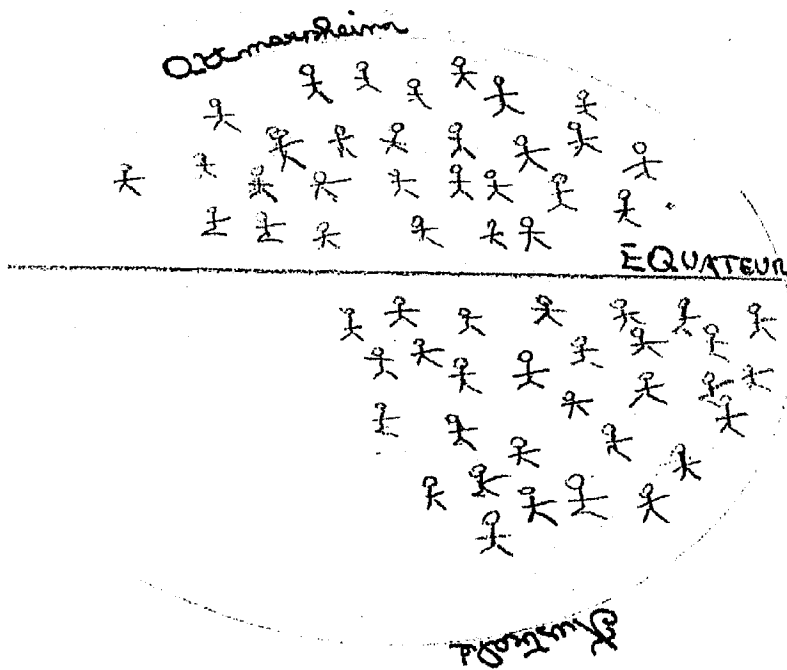 Ottmarsheim
EQUATEUR
Australie